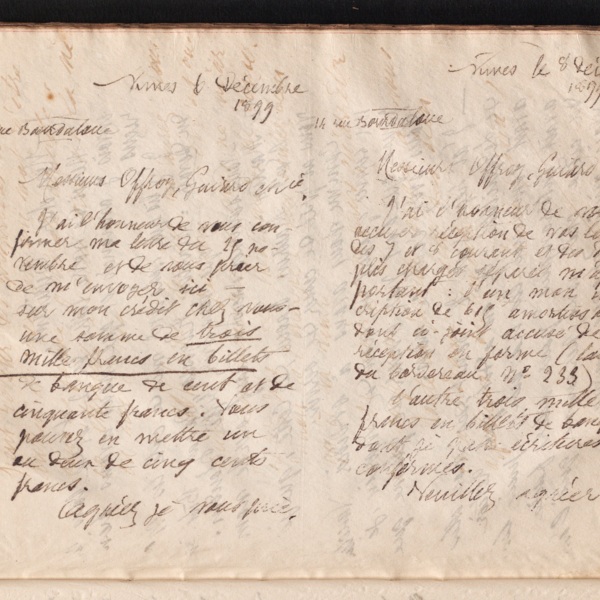 Nîmes 6 Décembre
1899
rue Bourdaloue
Messieurs Offroy, Guiard & Cie.
J'ai l'honneur de vous con
firmer ma lettre du 25 no-
vembre et de vous prier
de m'envoyer ici
sur mon crédit chez vous
une somme de trois
mille francs en billets
de banque de cent et de
cinquante francs. Vous
pouvez en mettre un
ou deux de cinq cents
francs.
Agréez je vous prie.
Nîmes le 8 Déc
1899
14 rue Bourdaloue
Messieurs Offroy, Guiard
J'ai l'honneur de
réception de vos
des 7 et 8 courant et des
plis chargés
portant : l'un mon
cription de 615 amortiss
dont ci-joint accusé de
réception en forme
du bordereau Nº 233)
L'autre trois mille
francs en billets de banq
dont j'ai écritures
conformes.
Veuillez agréer